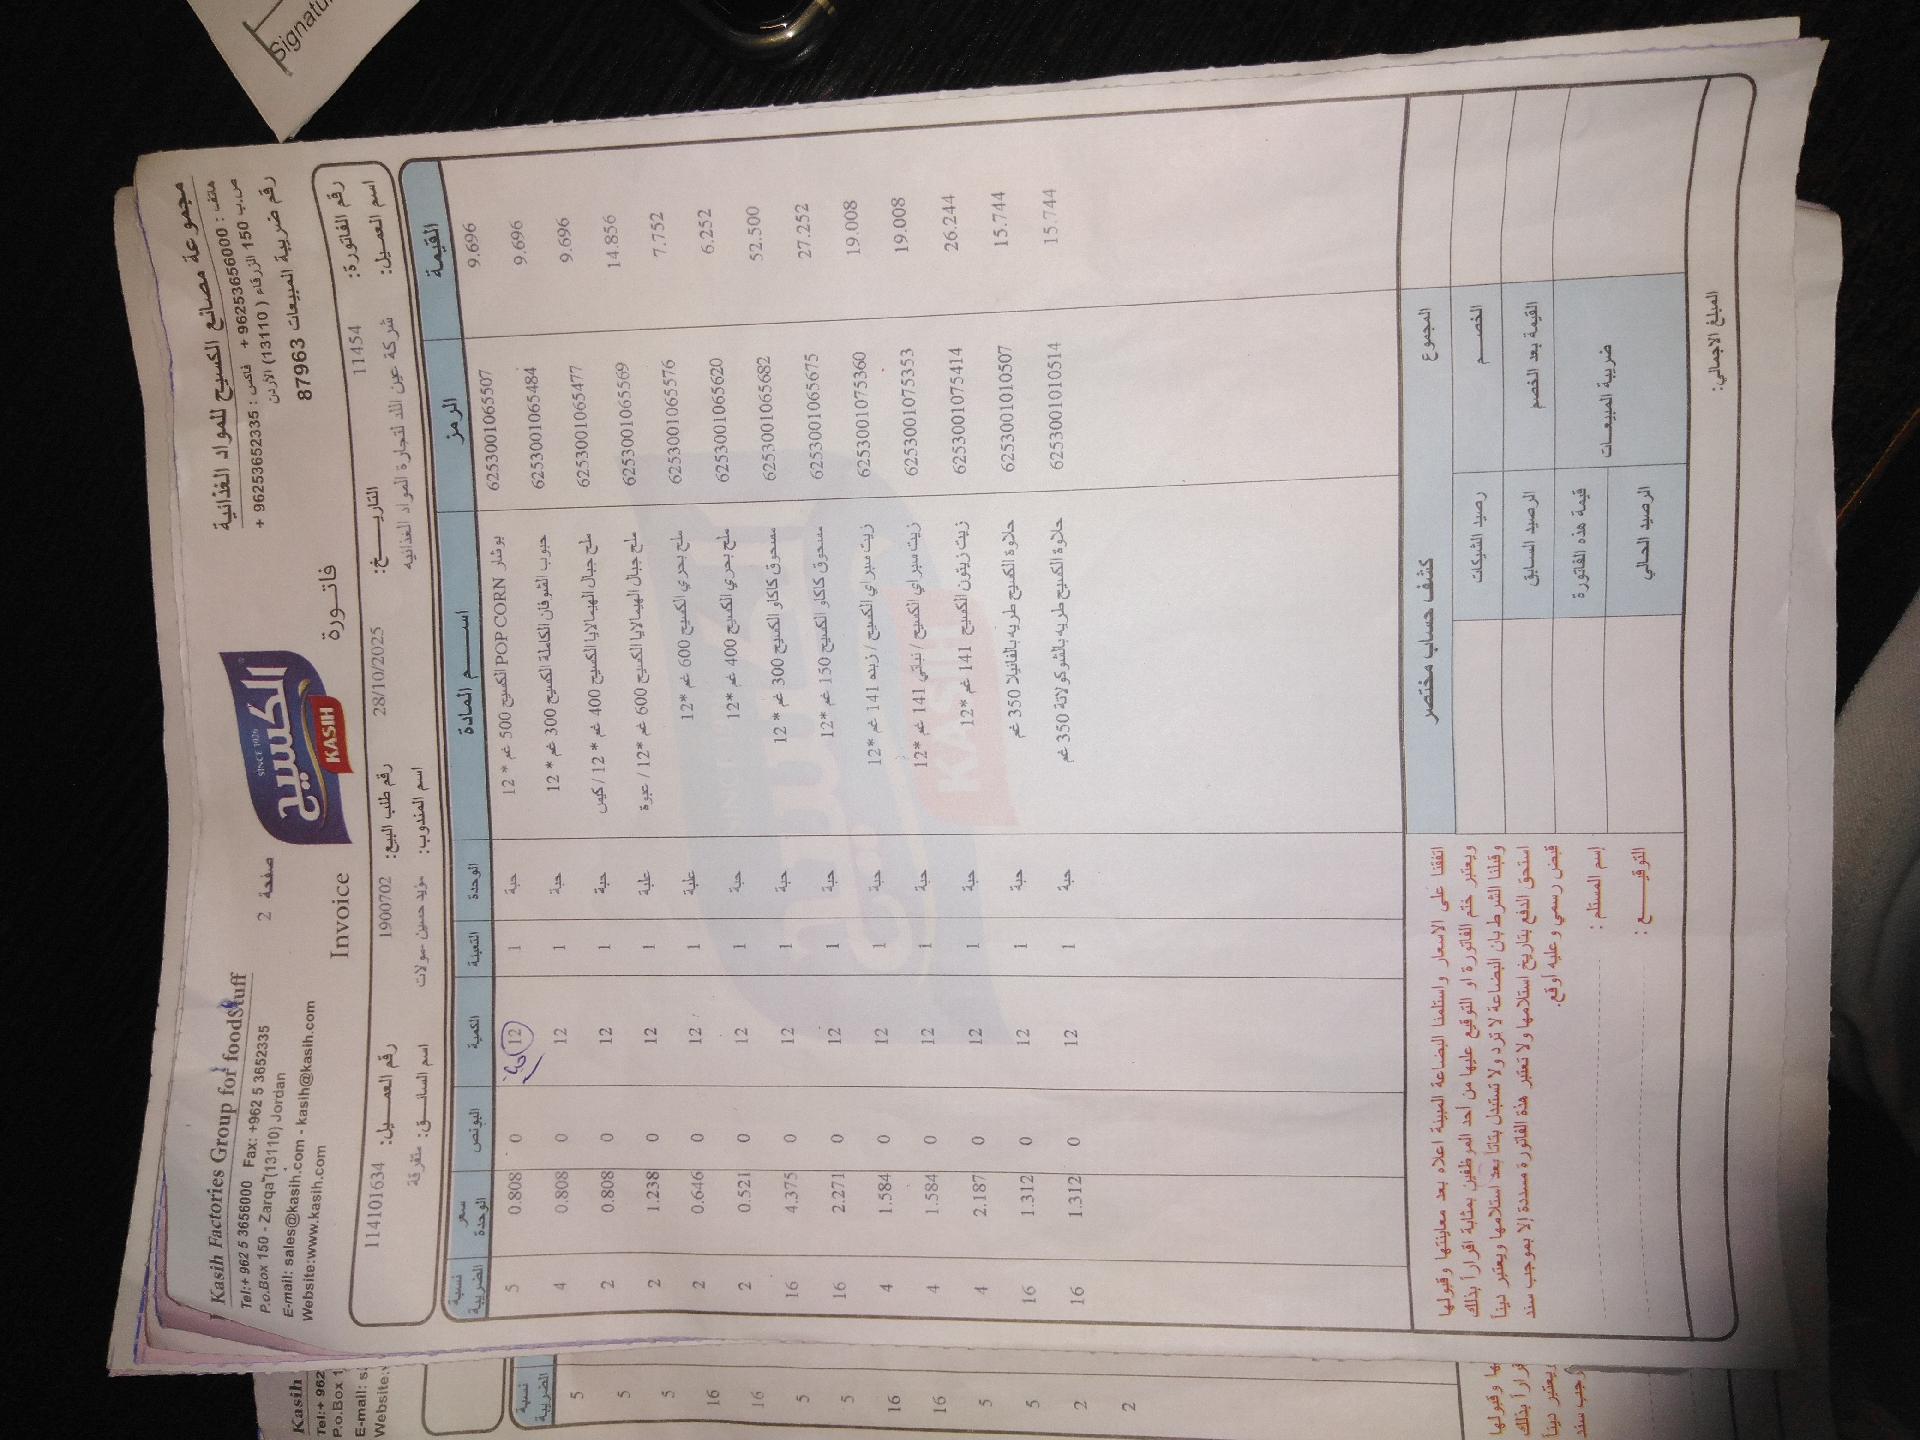 Signatu
Kasih Factories Group for foodStuff
Tel:+ 962 5 3656000 Fax: +962 5 3652335
P.o.Box 150 - Zarqa (13110) Jordan
E-mail: sales@kasih.com - kasih@kasih.com
Website:www.kasih.com
صفحة 2
SINCE 1926
الكسيح
KASIH
مجموعة مصانع الكسيح للمواد الغذائية
هاتف : 96253656000 + فاكس : 96253652335 +
ص.ب 150 الزرقاء (13110) الأردن
رقم ضريبة المبيعات 87963
فاتورة Invoice
رقم الفاتورة: 11454 التاريخ: 28/10/2025 رقم طلب البيع: 1900702 رقم العميل: 114101634
اسم العميل: شركة عين اللد لتجارة المواد الغذائيه اسم المندوب: مؤيد حسين -مولات اسم السائق: متفرقة
القيمة الرمز اسم المادة الوحدة التعبئة الكمية البونص سعر الوحدة نسبة الضريبة
9.696 6253001065507 بوشار POP CORN الكسيح 500 غم * 12 حبة 1 12 0 0.808 5
9.696 6253001065484 حبوب الشوفان الكاملة الكسيح 300 غم * 12 حبة 1 12 0 0.808 4
9.696 6253001065477 ملح جبال الهيمالايا الكسيح 400 غم * 12 / كيس حبة 1 12 0 0.808 2
14.856 6253001065569 ملح جبال الهيمالايا الكسيح 600 غم *12 / عبوة علبة 1 12 0 1.238 2
7.752 6253001065576 ملح بحري الكسيح 600 غم *12 علبة 1 12 0 0.646 2
6.252 6253001065620 ملح بحري الكسيح 400 غم *12 حبة 1 12 0 0.521 2
52.500 6253001065682 مسحوق كاكاو الكسيح 300 غم * 12 حبة 1 12 0 4.375 16
27.252 6253001065675 مسحوق كاكاو الكسيح 150 غم *12 حبة 1 12 0 2.271 16
19.008 6253001075360 زيت سبراي الكسيح / زبده 141 غم *12 حبة 1 12 0 1.584 4
19.008 6253001075353 زيت سبراي الكسيح / نباتي 141 غم *12 حبة 1 12 0 1.584 4
26.244 6253001075414 زيت زيتون الكسيح 141 غم *12 حبة 1 12 0 2.187 4
15.744 6253001010507 حلاوة الكسيح طريه بالفانيلا 350 غم حبة 1 12 0 1.312 16
15.744 6253001010514 حلاوة الكسيح طريه بالشوكولاتة 350 غم حبة 1 12 0 1.312 16
المجموع
الخصم
القيمة بعد الخصم
ضريبة المبيعات
كشف حساب مختصر
رصيد الشيكات
الرصيد السابق
قيمة هذه الفاتورة
الرصيد الحالي
اتفقنا على الاسعار واستلمنا البضاعة المبينة اعلاه بعد معاينتها وقبولها
ويعتبر ختم الفاتورة او التوقيع عليها من احد الموظفين بمثابة اقراراً بذلك
وقبلنا الشرط بان البضاعة لا ترد ولا تستبدل بتاتا بعد استلامها ويعتبر ديناً
استحق الدفع بتاريخ استلامها ولا تعتبر هذه الفاتورة مسددة إلا بموجب سند
قبض رسمي وعليه أوقع.
إسم المستلم :
التوقيع :
المبلغ الاجمالي:
Kasih
Tel:+ 962
P.o.Box 1
E-mail: s
Website:
نسبة الضريبة
5
5
5
16
16
5
5
16
16
5
5
2
2